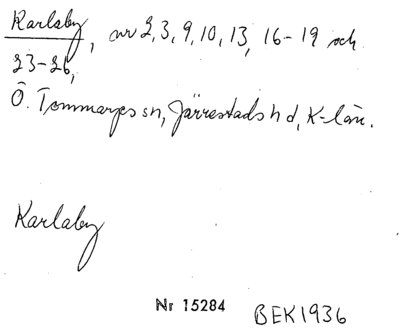 Karlaby, nr 2, 3, 9, 10, 13, 16-19 och
23-26,
Ö. Tommarps sn, Järrestads hd, K-län.
Karlaby
Nr 15284 BEK1936